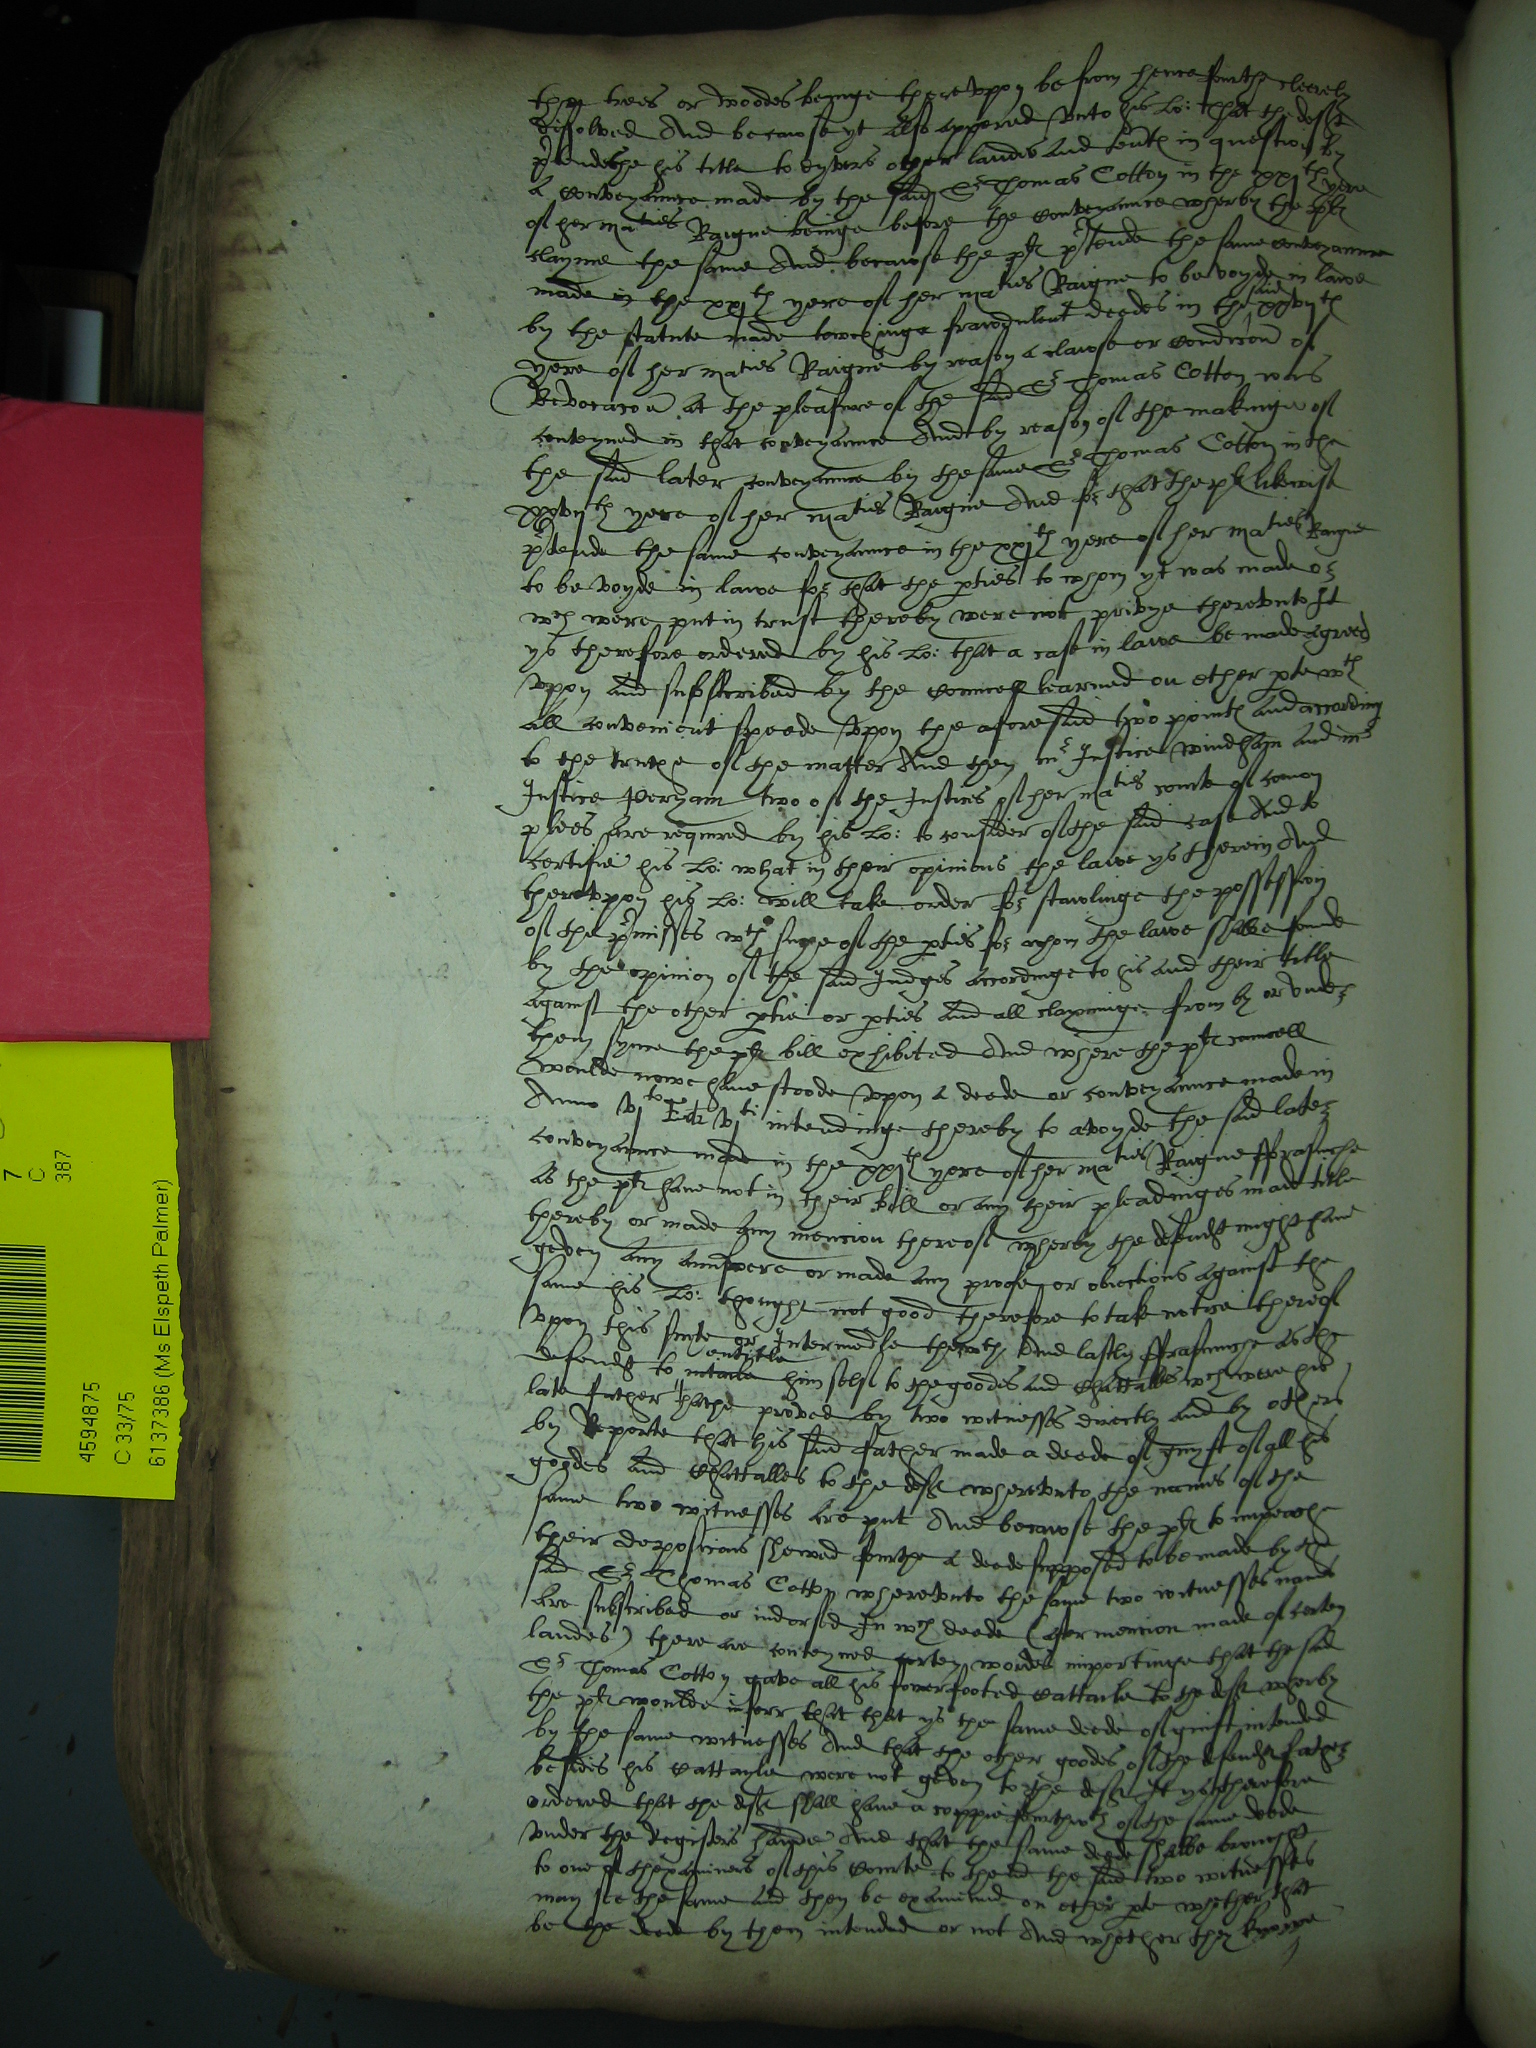 the trees or woodes beinge there vppon be from hencefourthe cleerely
dissolved And becawse yt also appered vnto his Lo: that the deft
ptendethe his title to dyvers other landes and tentes in question by
a conveyaunce made by the said Sr Thomas Cotton in the xxjth yere
of her maties Raigne beinge before the conveyaunce wherby the plt
clayme the same And becawse the plt ptende the same conveyaunce
made in the xxjth yere of her maties Raigne to be voyde in lawe
by the statute made towchinge frawdulent deedes in the said xxvijth
yere of her maties Raigne by reason a clawse or condicion of
Revocacon at the pleasure of the said Sr Thomas Cotton was
conteyned in that conveyaunce And by reason of the makinge of
the said later conveyaunce by the same Sr Thomas Cotton in the
xxvijth yere of her maties Raigne And for that the plt likewise
ptende the same conveyaunce in the xxjth yere of her maties Raigne
to be voyde in lawe for that the pties to whom yt was made or
wch were put in trust thereby were not privye therevnto It
ys therefore ordered by his Lo: that a case in lawe be made agreed
vppon and subscribed by the councell learned on ether pte wth
all convenient speede vppon the aforesaid two pointes and according
to the truthe of the matter And then mr Justice Windham and mr
Justice Peryam two of the Justices of her maties courte of comon
plees are required by his Lo: to consider of the said case And to
certifie his Lo: what in their opinions the lawe ys therein And
therevppon his Lo: will take order for stawlinge the possession
of the pmisses wth suche of the pties for whom the lawe shalbe founde
by the opinion of the said Judges accordinge to his and their title
against the other ptie or pties and all clayminge from by or vnder
them synce the plt bill exhibited And where the plt councell
woulde nowe have stoode vppon a deede or conveyaunce made in
Anno vjto Ed: vjti intendinge thereby to avoyde the said later
conveyaunce made in the xxjth yere of her maties Raigne fforasmuche
as the plt have not in their bill or any their pleadinges made title
thereby or made any mencion thereof wherby the defendt might have
geven any aunswere or made any proofe or obiections against the
same his Lo: thought not good therefore to take notice thereof
vpon this suite or Intermedle therwth And lastly fforasmuche as the
defendt to intitle entitle him self to the goodes and Chattalles wch were his
late father hathe proved by two witnesses directly and by others
by Reporte that his said father made a deede of guyft of all his
goodes and Chattalles to the deft wherevnto the names of the
same two witnesses are put And becawse the plt to impeache
their deposicions shewed fourthe a deede supposed to be made by the
said Sr Thomas Cotton wherevnto the same two witnesses names
are subscribed or indorsed In wch deede (after mencion made of certen
landes) there are conteyned certen wordes importinge that the said
Sr Thomas Cotton gave all his fowerfooted cattayle to the deft wherby
the plt woulde inferr that that ys the same deede of guift intended
by the same witnesses And that the other goodes of the defendt father
besides his cattayle were not geven to the deft It ys therefore
ordered that the deft shall have a coppie fourthwth of the same deede
vnder the Registers hande And that the same deede shalbe brought
to one of thexaminers of this courte to thend the said two witnesses
may see the same and then be examined on ether pte whether that
be the deede by them intended or not And whether they knowe
7
C
387
4594875
C 33/75
6137386 (Ms Elspeth Palmer)